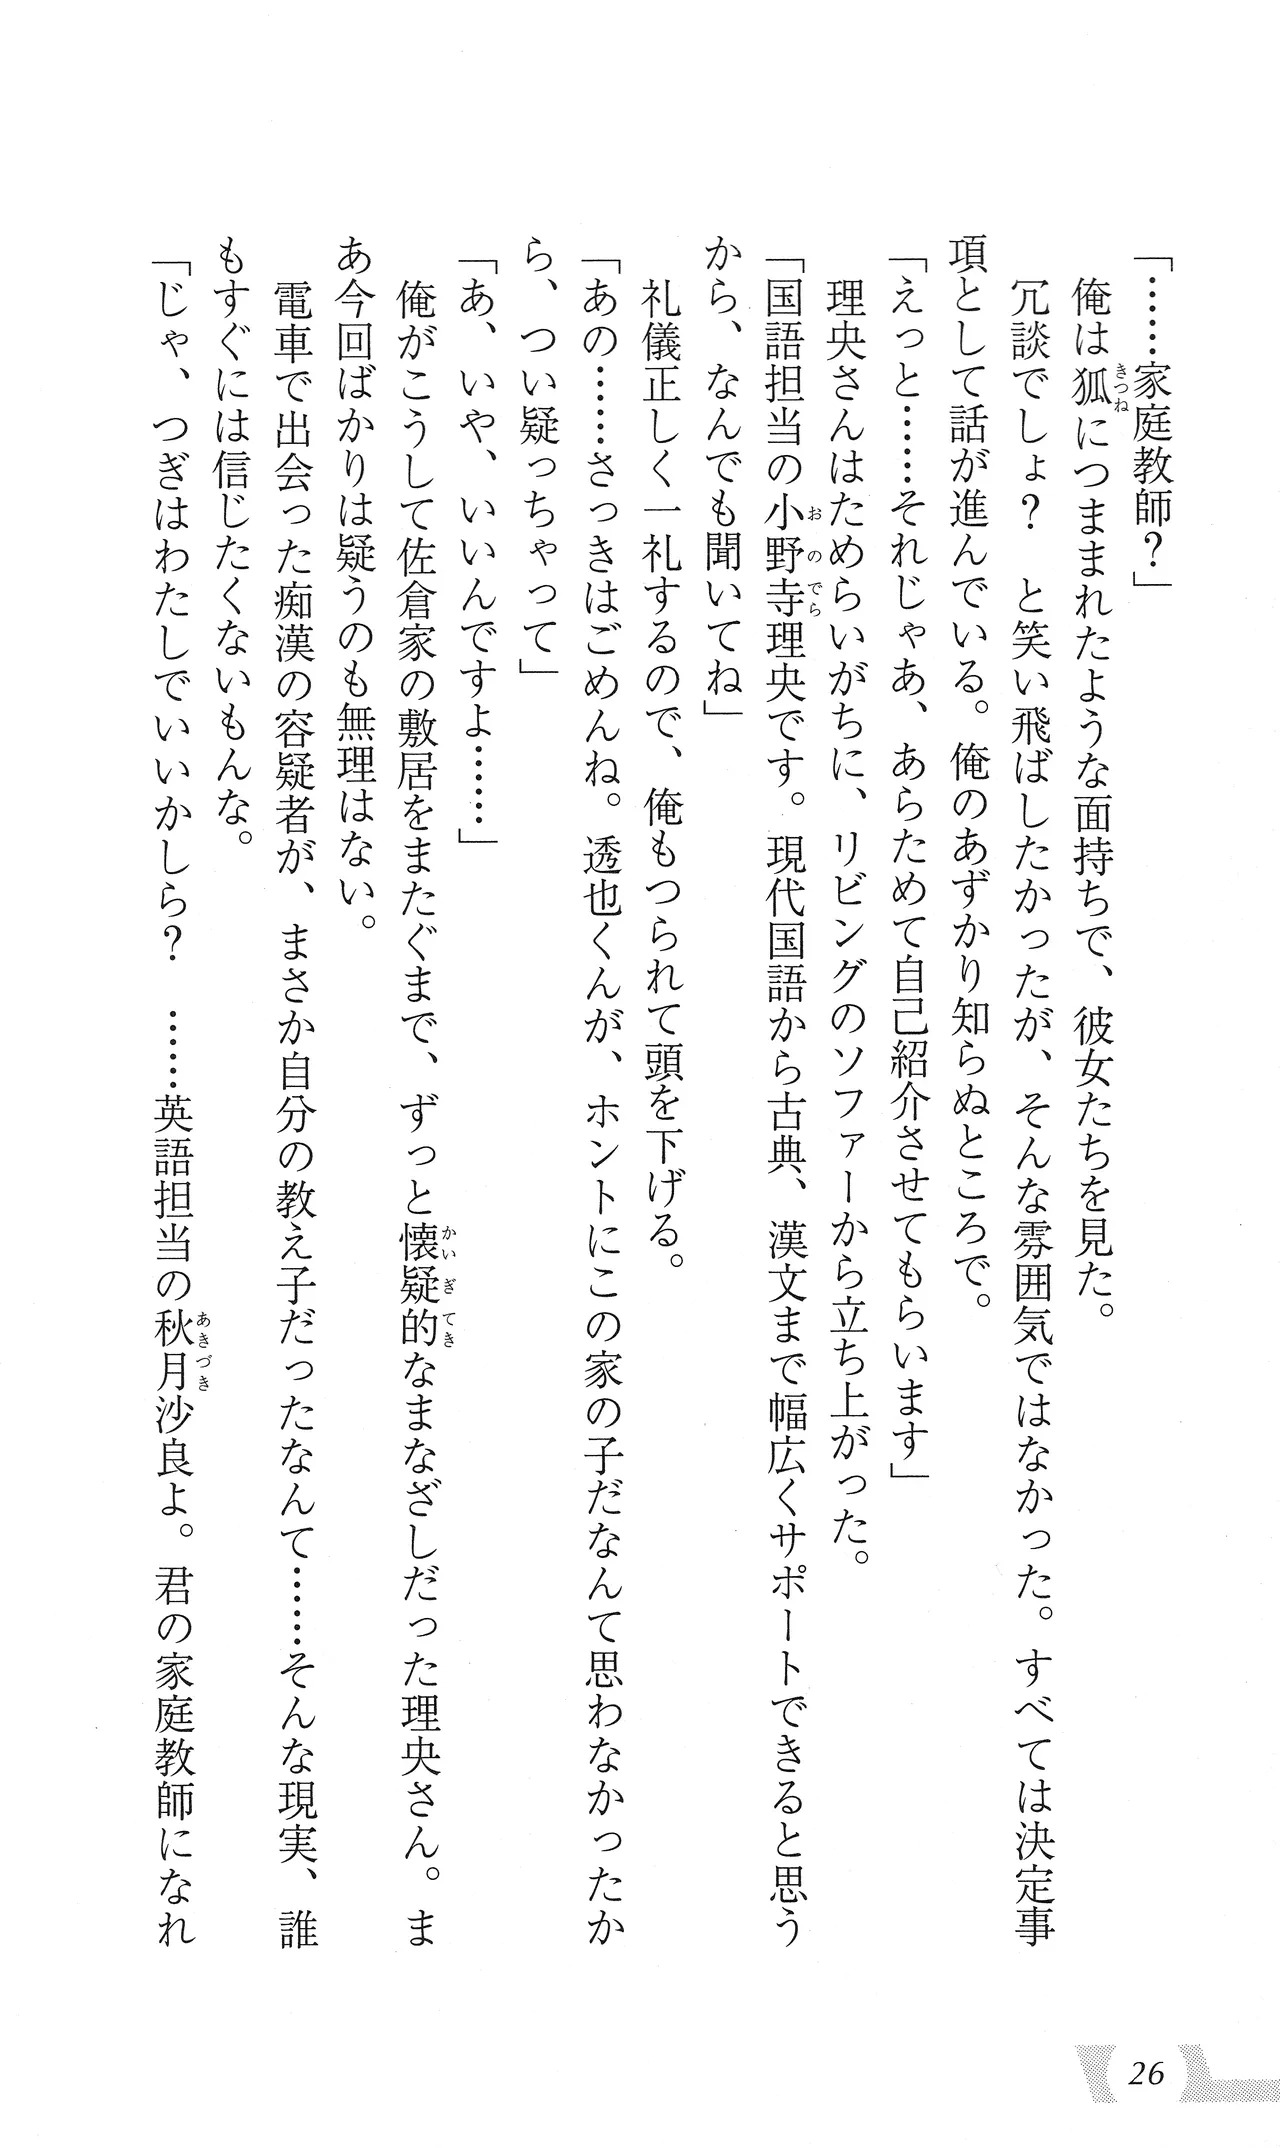 「……家庭教師？」
　俺は狐につままれたような面持ちで、彼女たちを見た。
　冗談でしょ？　と笑い飛ばしたかったが、そんな雰囲気ではなかった。すべては決定事
項として話が進んでいる。俺のあずかり知らぬところで。
「えっと……それじゃあ、あらためて自己紹介させてもらいます」
　理央さんはためらいがちに、リビングのソファーから立ち上がった。
「国語担当の小野寺理央です。現代国語から古典、漢文まで幅広くサポートできると思う
から、なんでも聞いてね」
　礼儀正しく一礼するので、俺もつられて頭を下げる。
「あの……さっきはごめんね。透也くんが、ホントにこの家の子だなんて思わなかったか
ら、つい疑っちゃって」
「あ、いや、いいんですよ……」
　俺がこうして佐倉家の敷居をまたぐまで、ずっと懐疑的なまなざしだった理央さん。ま
あ今回ばかりは疑うのも無理はない。
　電車で出会った痴漢の容疑者が、まさか自分の教え子だったなんて……そんな現実、誰
もすぐには信じたくないもんな。
「じゃ、つぎはわたしでいいかしら？　……英語担当の秋月沙良よ。君の家庭教師になれ
きつね
おのでら
かいぎてき
あきづき
26